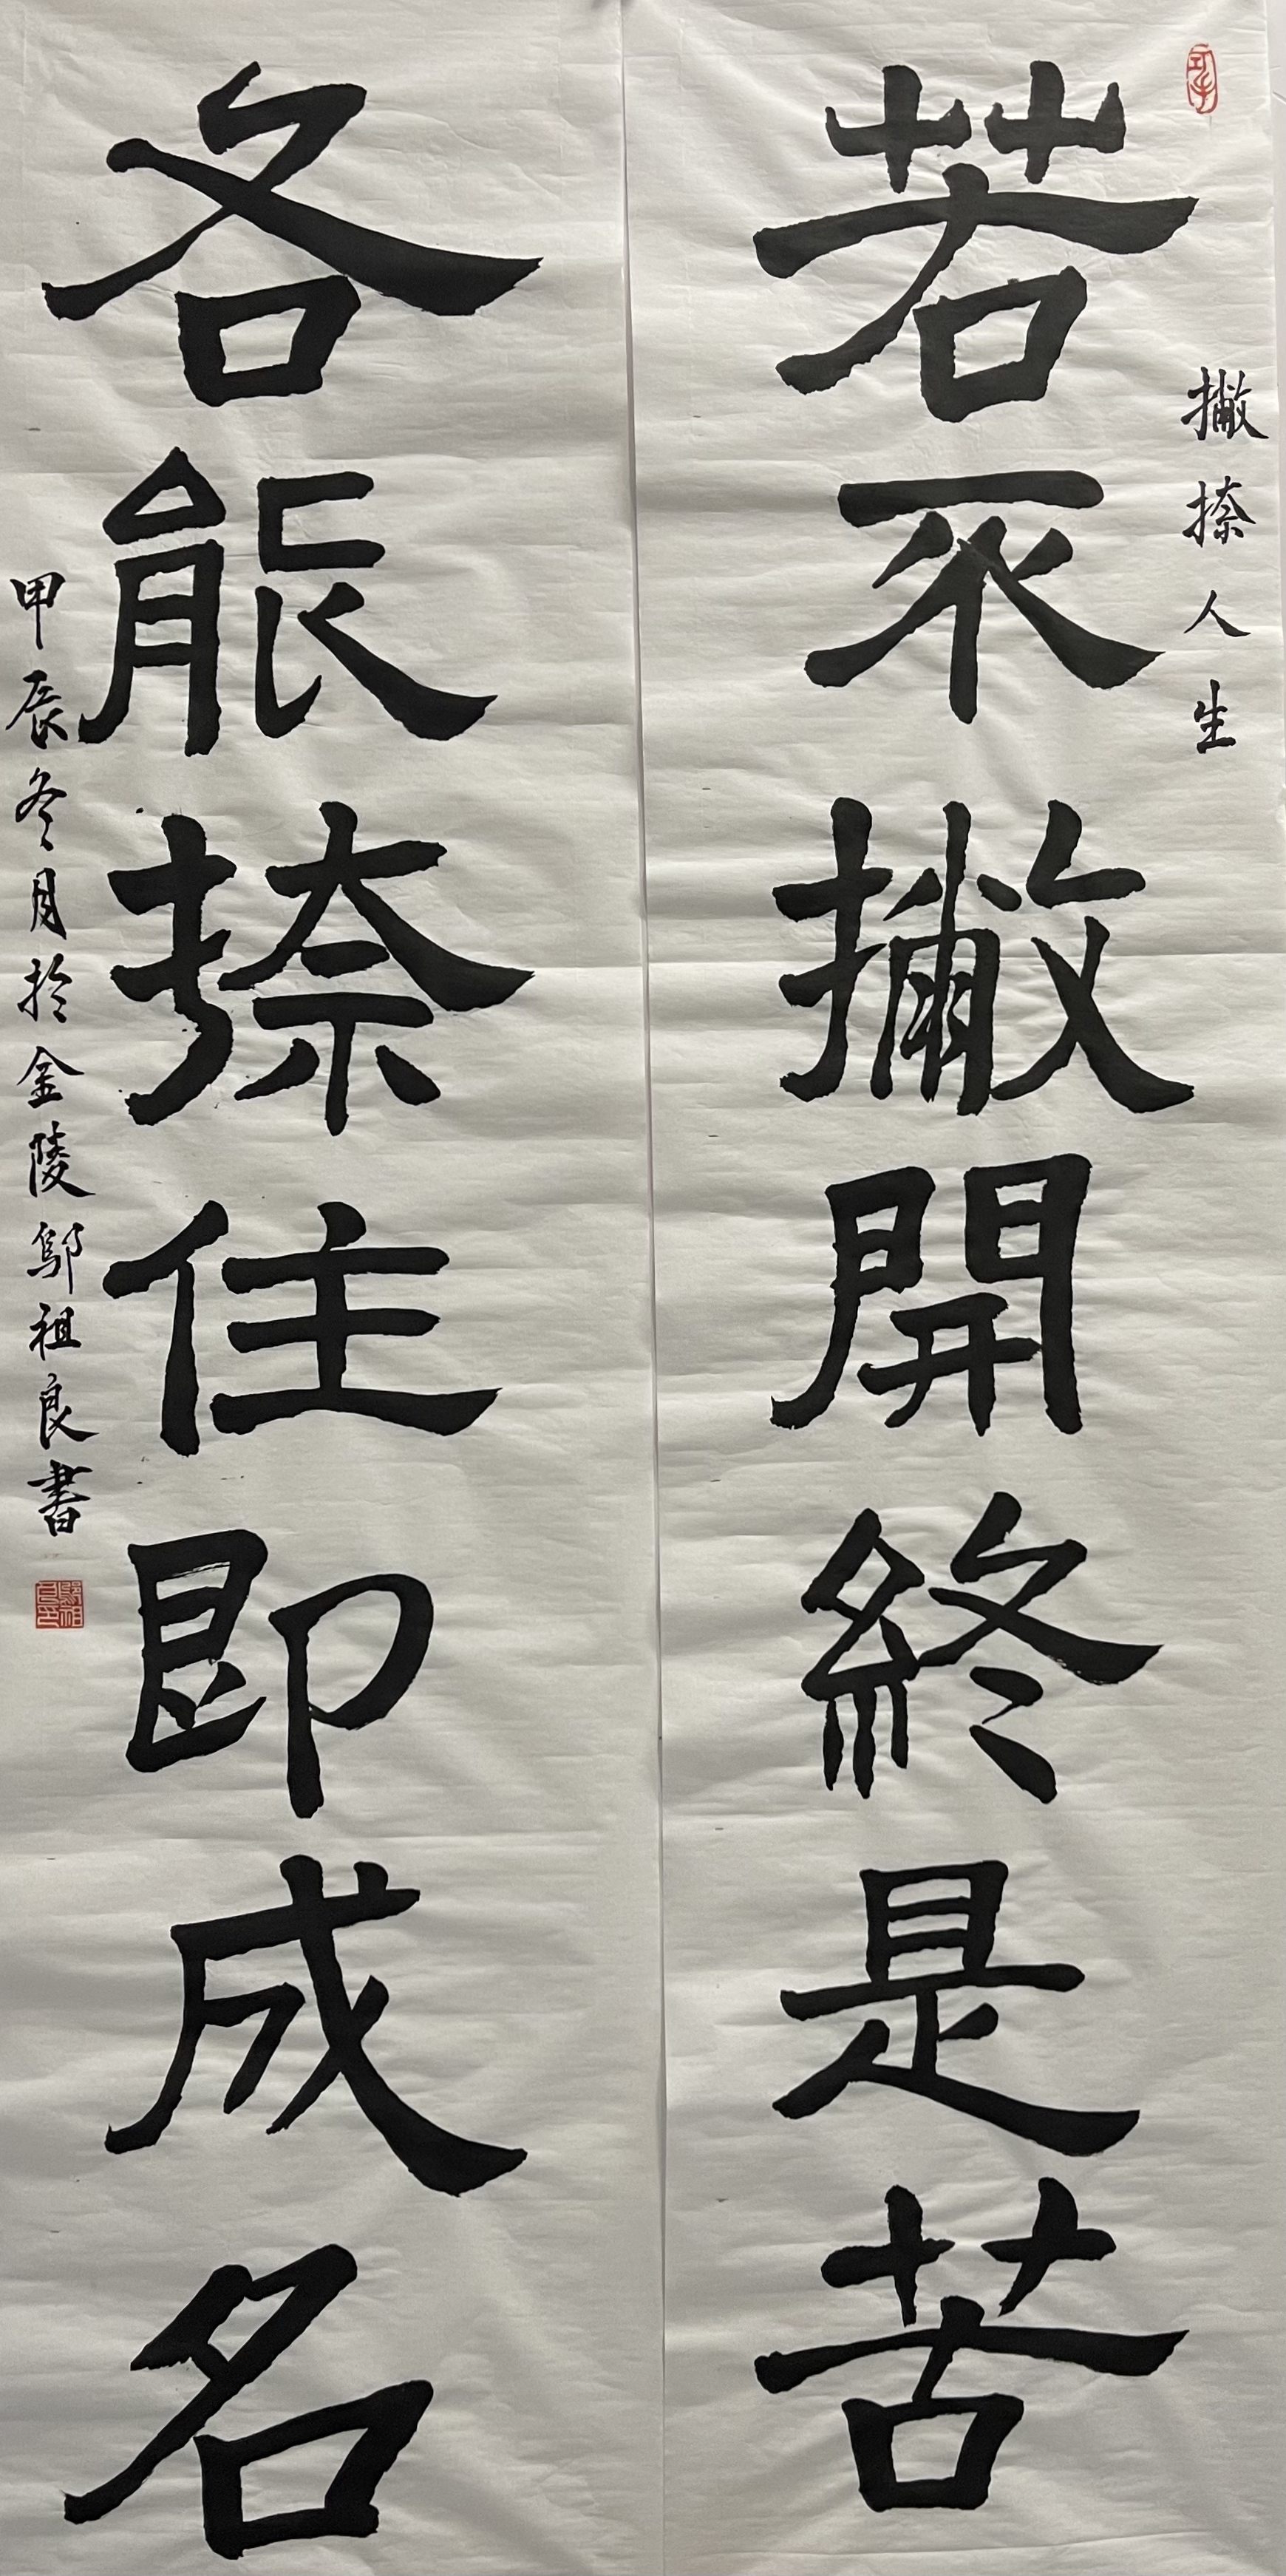 撇捺人生
若不撇開終是苦
各能捺住即成名
甲辰冬月於金陵鄔祖良書